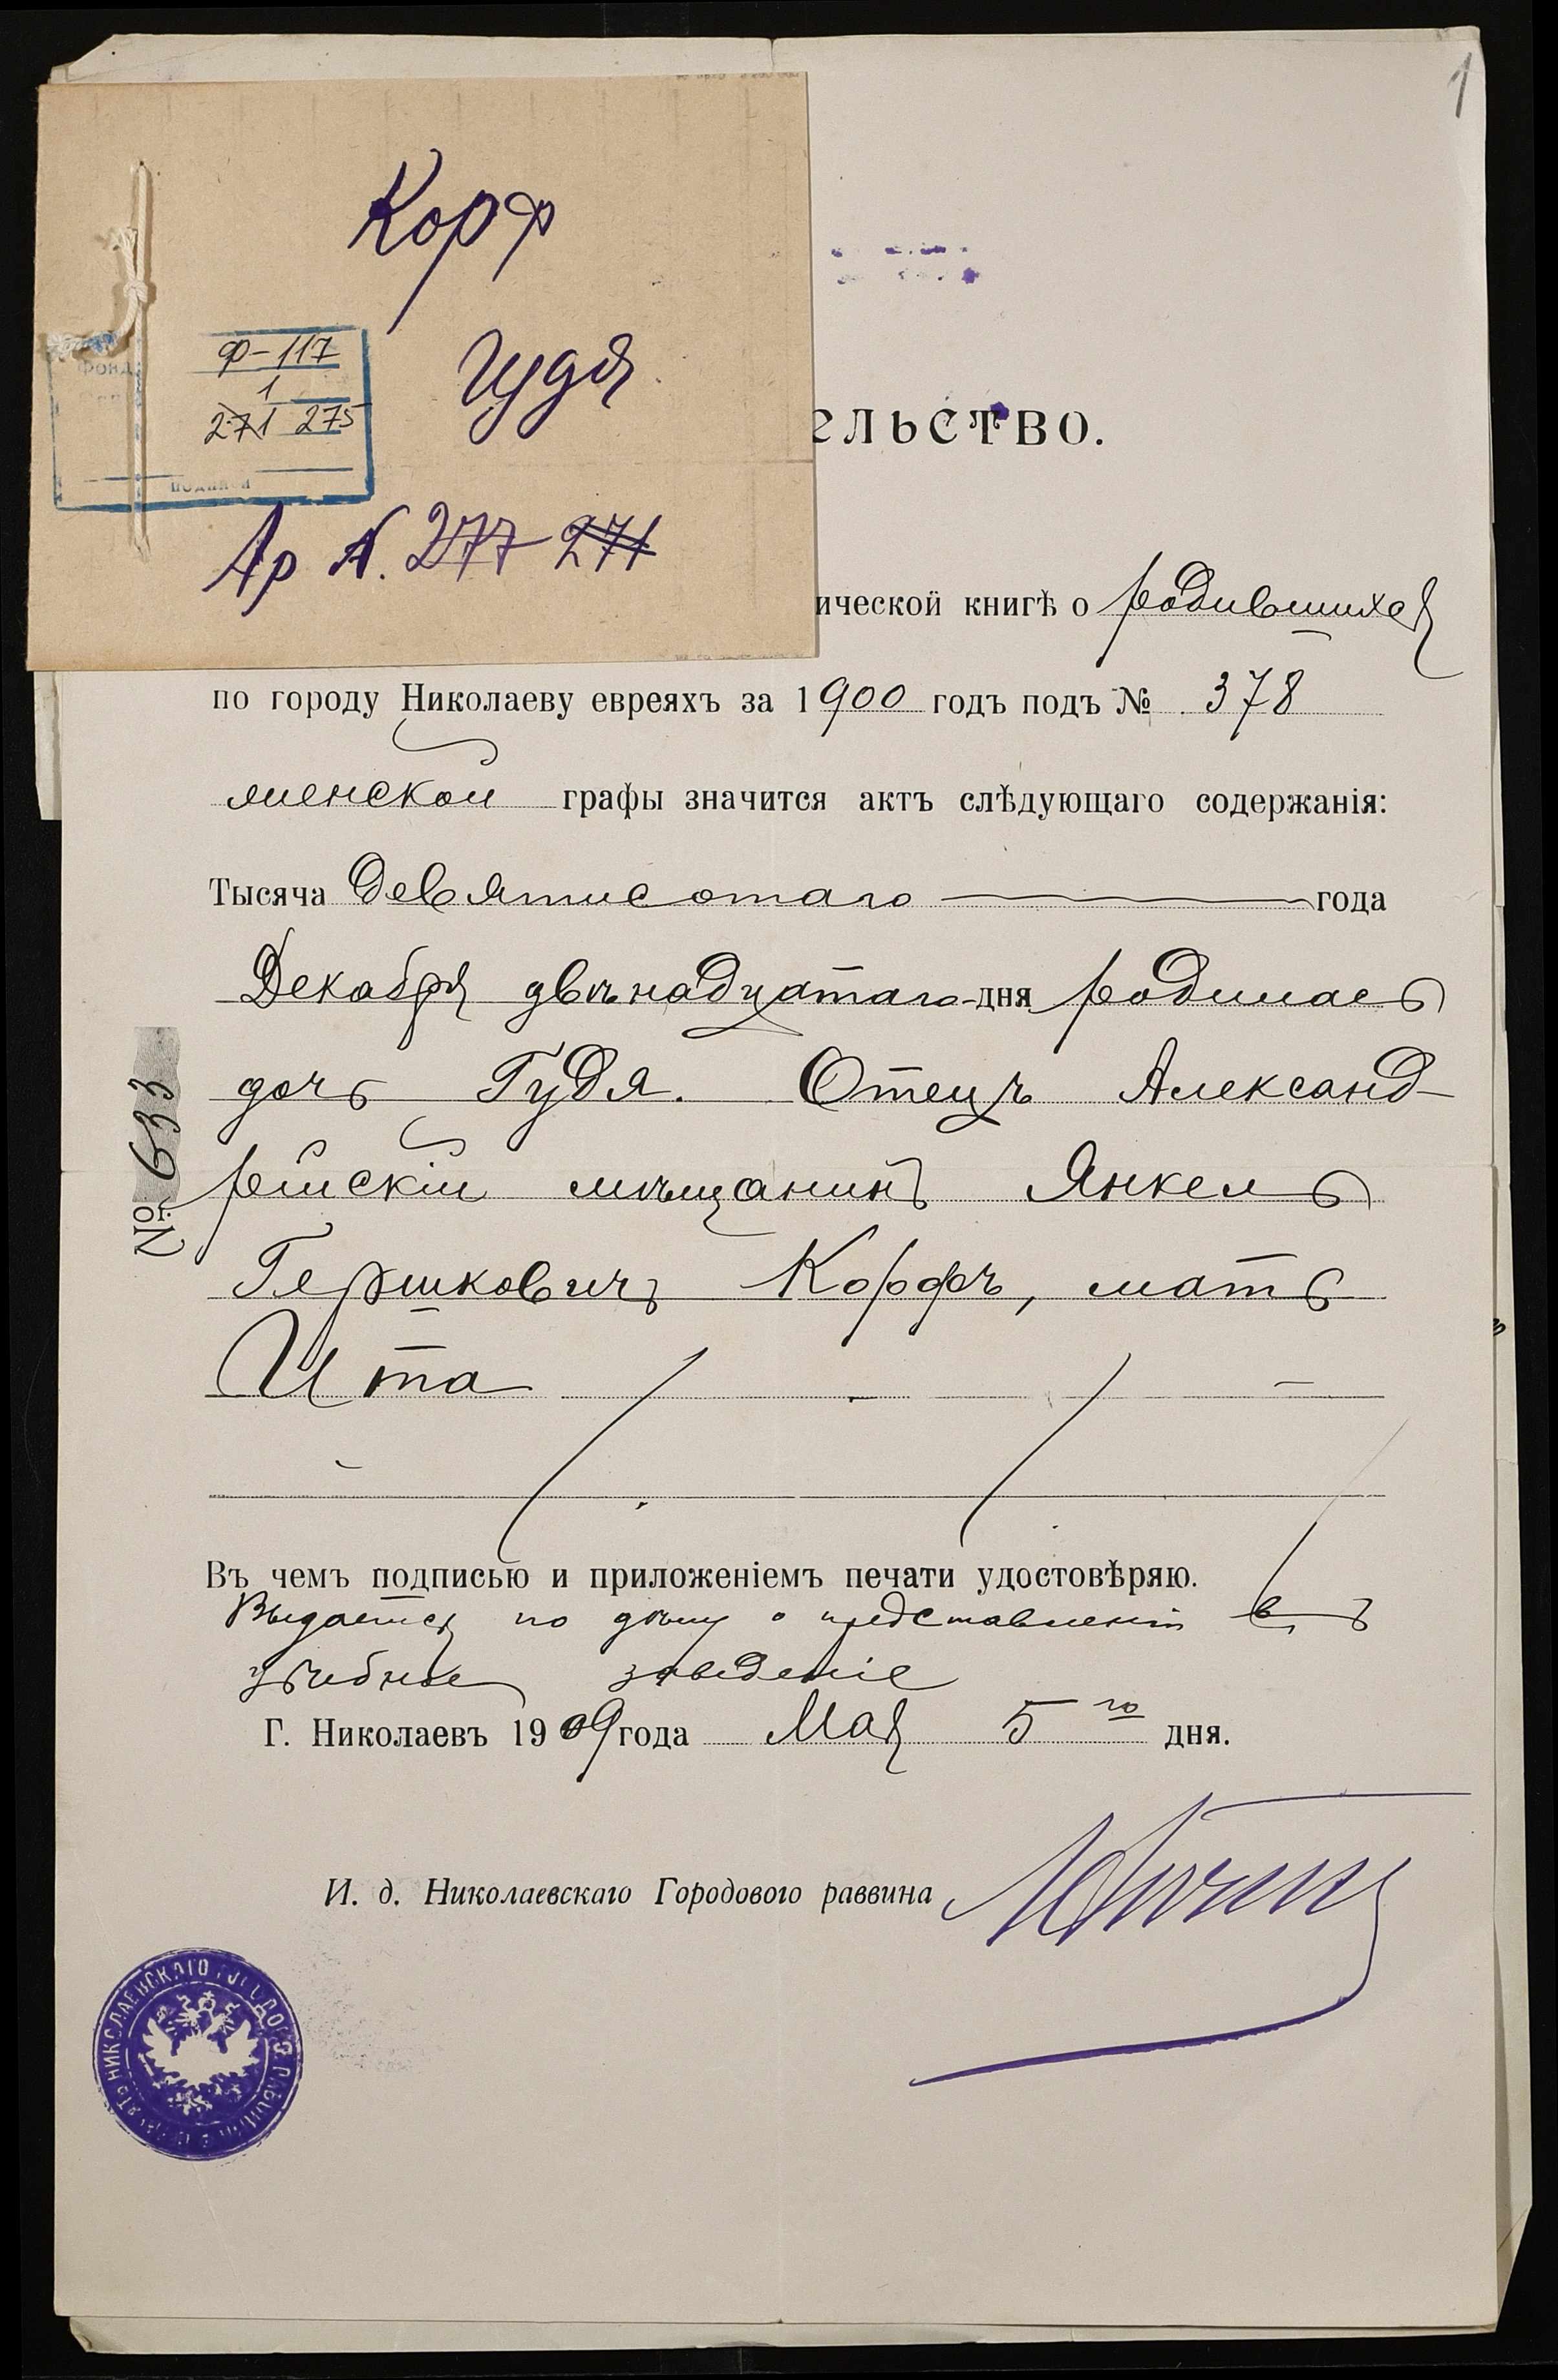 1
Корф
Гудя
Фонд
Ф-117
1
271 275
Ар N. 277 271
ельство.
ической книгѣ о родившихся
по городу Николаеву евреяхъ за 1900 годъ подъ № 378
женской графы значится актъ слѣдующаго содержанія:
Тысяча девятисотаго года
Декабря двѣнадцатаго дня родилась
дочь Гудя. Отецъ Александ-
рійскій мѣщанинъ Янкель
Гершковичъ Корфъ, мать
Ита
№ 633
Въ чемъ подписью и приложеніемъ печати удостовѣряю.
Выдается по дѣлу о представленіи въ
учебное заведеніе
Г. Николаевъ 1909 года Мая 5го дня.
И. д. Николаевскаго Городового раввина
НИКОЛАЕВСКАГО ГОРОДОВОГО РАВВИНА